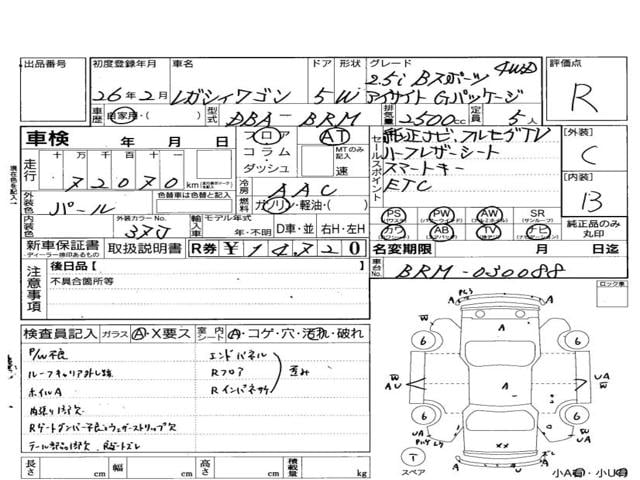 出品番号
初度登録年月 車名 ドア 形状 グレード 評価点
26年2月 レガシィワゴン 5 W 2.5i Bスポーツ 4WD
アイサイト Gパッケージ R
車歴 自家用・( ) 型式 DBA - BRM 排気量 2500cc 定員 5人
車検 年 月 日
フロア AT
コラム MTのみ記入
ダッシュ 速
セールスポイント
純正ナビ、フルセグTV
ハーフレザーシート
スマートキー
ETC
【外装】
C
【内装】
B
走行 十万 万 千 百 十
72070 km
冷房 AAC
燃料 ガソリン・軽油・( )
外装色 パール 色替車は色替と記入
内装色 外装カラーNo. 37J
輸入車 モデル年式 年・不明 D車・並 右H・左H
PS PW AW SR
カワ AB TV ナビ
純正品のみ丸印
新車保証書 取扱説明書 R券 ¥14720
ディーラー捺印あるもの
名変期限 月 日迄
車台No. BRM-030088
注意事項
後日品【 】
不具合箇所等
ロック車
検査員記入 ガラス A・X要ス 室内 シート A・コゲ・穴・汚れ・破れ
P/W不良 エンドパネル
ルーフキャリア外し跡 Rフロア 歪み
ホイルA Rインパネサイ
内張り1部欠
Rゲートダンパー不良、ウェザーストリップ欠
長さ cm 幅 cm 高さ cm 積載量 kg
スペア
小A有・小U有